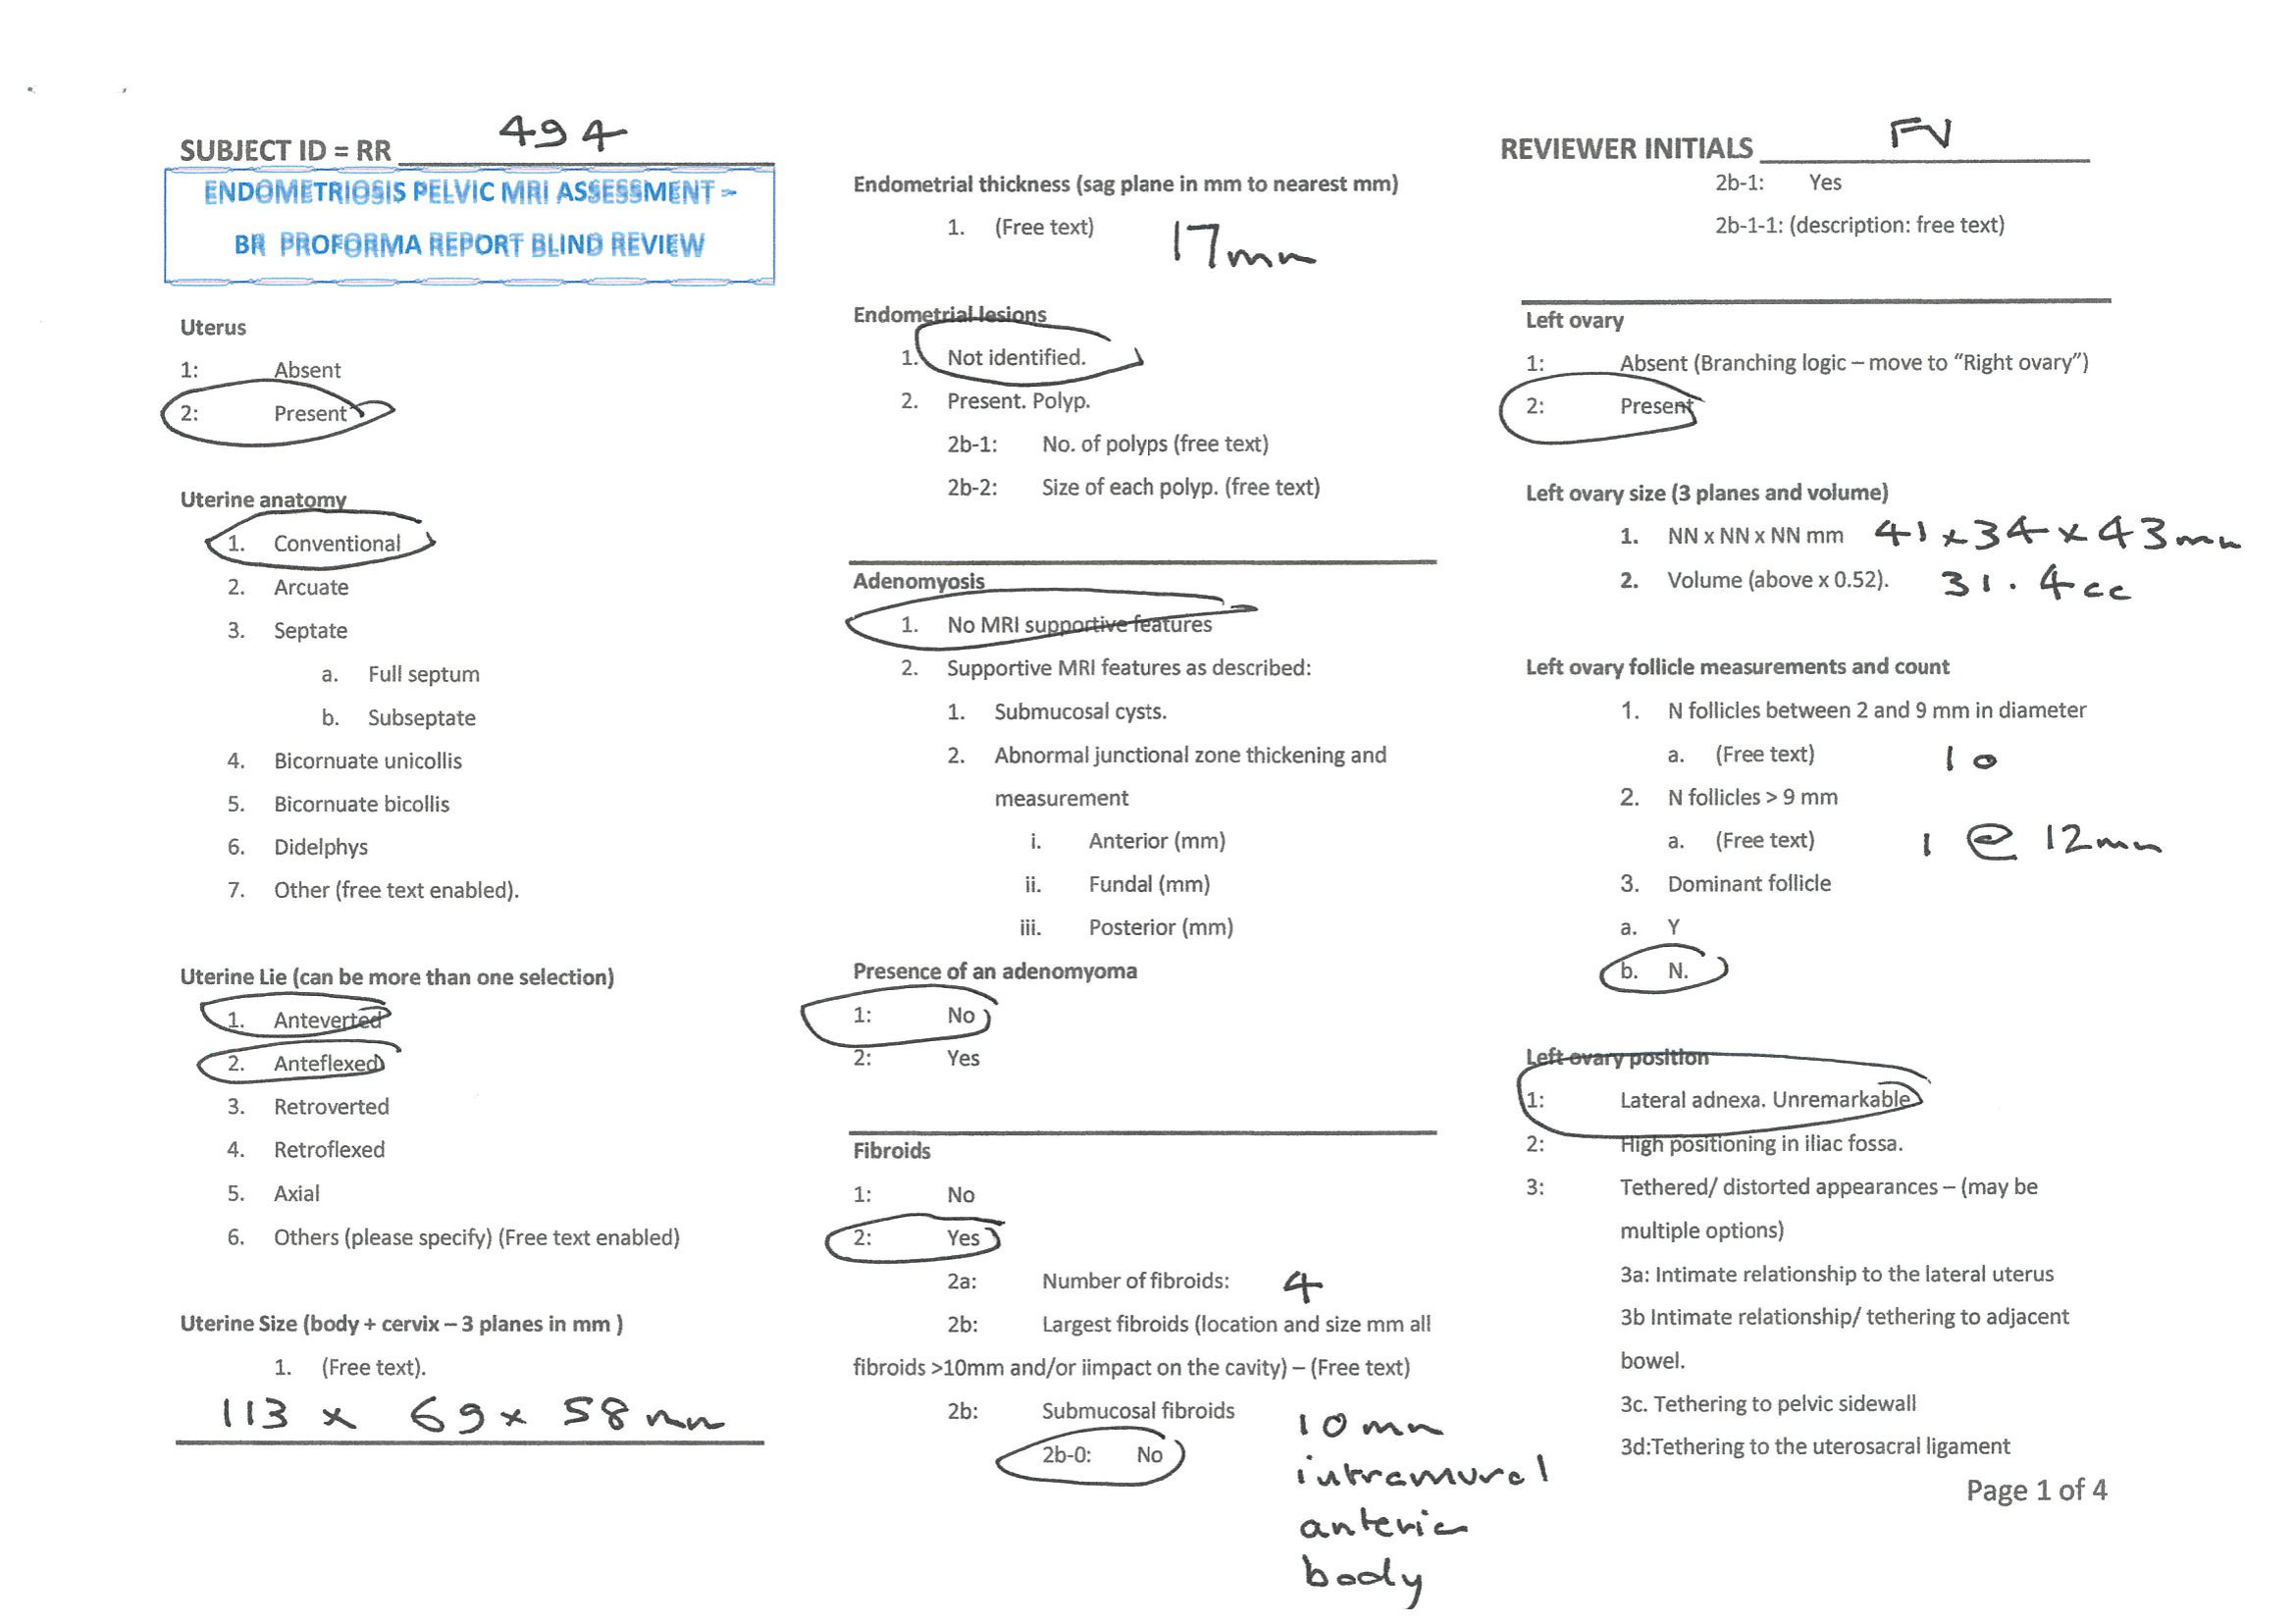 SUBJECT ID = RR 494
ENDOMETRIOSIS PELVIC MRI ASSESSMENT –
BR PROFORMA REPORT BLIND REVIEW
Uterus
1: Absent
2: Present
Uterine anatomy
1. Conventional
2. Arcuate
3. Septate
a. Full septum
b. Subseptate
4. Bicornuate unicollis
5. Bicornuate bicollis
6. Didelphys
7. Other (free text enabled).
Uterine Lie (can be more than one selection)
1. Anteverted
2. Anteflexed
3. Retroverted
4. Retroflexed
5. Axial
6. Others (please specify) (Free text enabled)
Uterine Size (body + cervix – 3 planes in mm )
1. (Free text).
113 x 69 x 58 mm
Endometrial thickness (sag plane in mm to nearest mm)
1. (Free text) 17mm
Endometrial lesions
1. Not identified.
2. Present. Polyp.
2b-1: No. of polyps (free text)
2b-2: Size of each polyp. (free text)
Adenomyosis
1. No MRI supportive features
2. Supportive MRI features as described:
1. Submucosal cysts.
2. Abnormal junctional zone thickening and
measurement
i. Anterior (mm)
ii. Fundal (mm)
iii. Posterior (mm)
Presence of an adenomyoma
1: No
2: Yes
Fibroids
1: No
2: Yes
2a: Number of fibroids: 4
2b: Largest fibroids (location and size mm all
fibroids >10mm and/or iimpact on the cavity) – (Free text)
2b: Submucosal fibroids
2b-0: No
10 mm
intramural
anterior
body
REVIEWER INITIALS FV
2b-1: Yes
2b-1-1: (description: free text)
Left ovary
1: Absent (Branching logic – move to “Right ovary”)
2: Present
Left ovary size (3 planes and volume)
1. NN x NN x NN mm 41 x 34 x 43mm
2. Volume (above x 0.52). 31.4cc
Left ovary follicle measurements and count
1. N follicles between 2 and 9 mm in diameter
a. (Free text) 10
2. N follicles > 9 mm
a. (Free text) 1 @ 12mm
3. Dominant follicle
a. Y
b. N.
Left ovary position
1: Lateral adnexa. Unremarkable
2: High positioning in iliac fossa.
3: Tethered/ distorted appearances – (may be
multiple options)
3a: Intimate relationship to the lateral uterus
3b Intimate relationship/ tethering to adjacent
bowel.
3c. Tethering to pelvic sidewall
3d:Tethering to the uterosacral ligament
Page 1 of 4